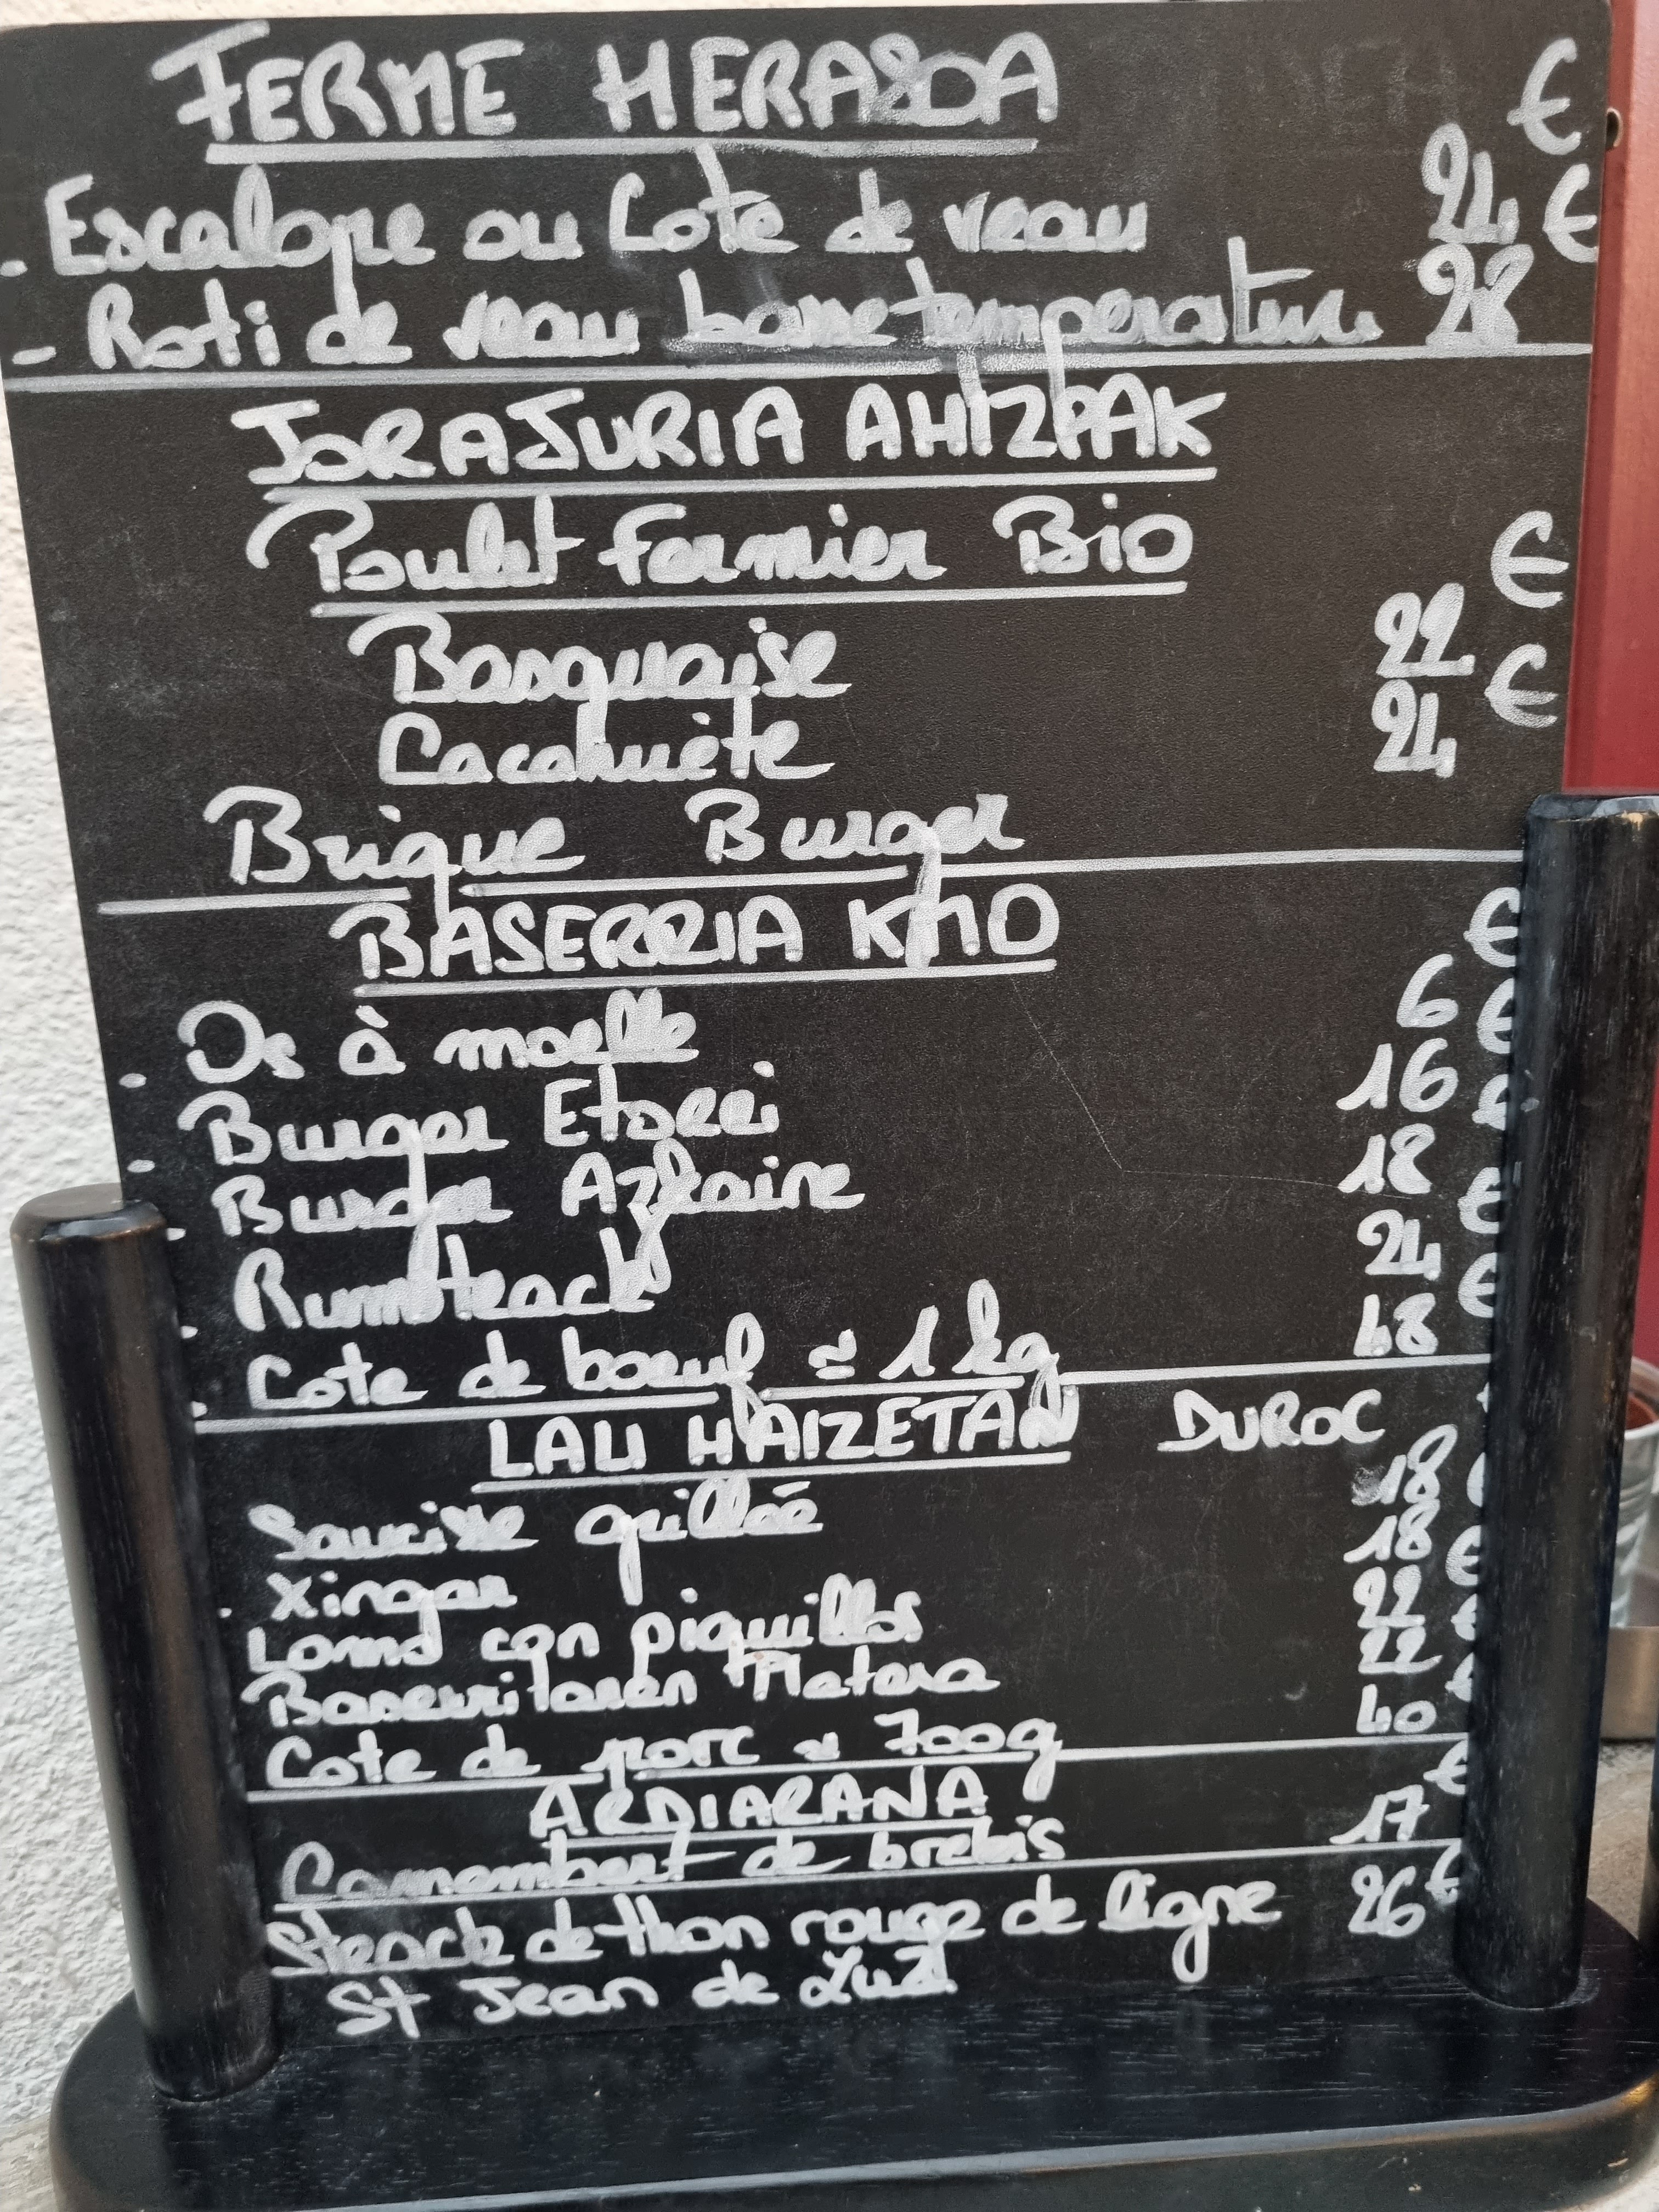 FERME HERASOA
- Escalope ou Cote de veau 24 €
- Roti de veau basse temperature 28 €
JORAJURIA AHIZPAK
Poulet fermier Bio
Basquaise 22 €
Cacahuète 24 €
Brique Burger
BASERRIA KMO
. Os à moelle 6 €
. Burger Etorri 16 €
. Burger Azkaine 18 €
. Rumsteack 24 €
. Cote de bœuf ≈ 1 kg 48 €
LAU HAIZETAN DUROC
Saucisse grillée 18 €
. Xingar 18 €
Lomo con piquillos 22 €
Baserritaren Platera 22 €
Cote de porc ≈ 700g 40 €
ARDIARANA
Camembert de brebis 17 €
Steack de thon rouge de ligne 26 €
St Jean de Luz